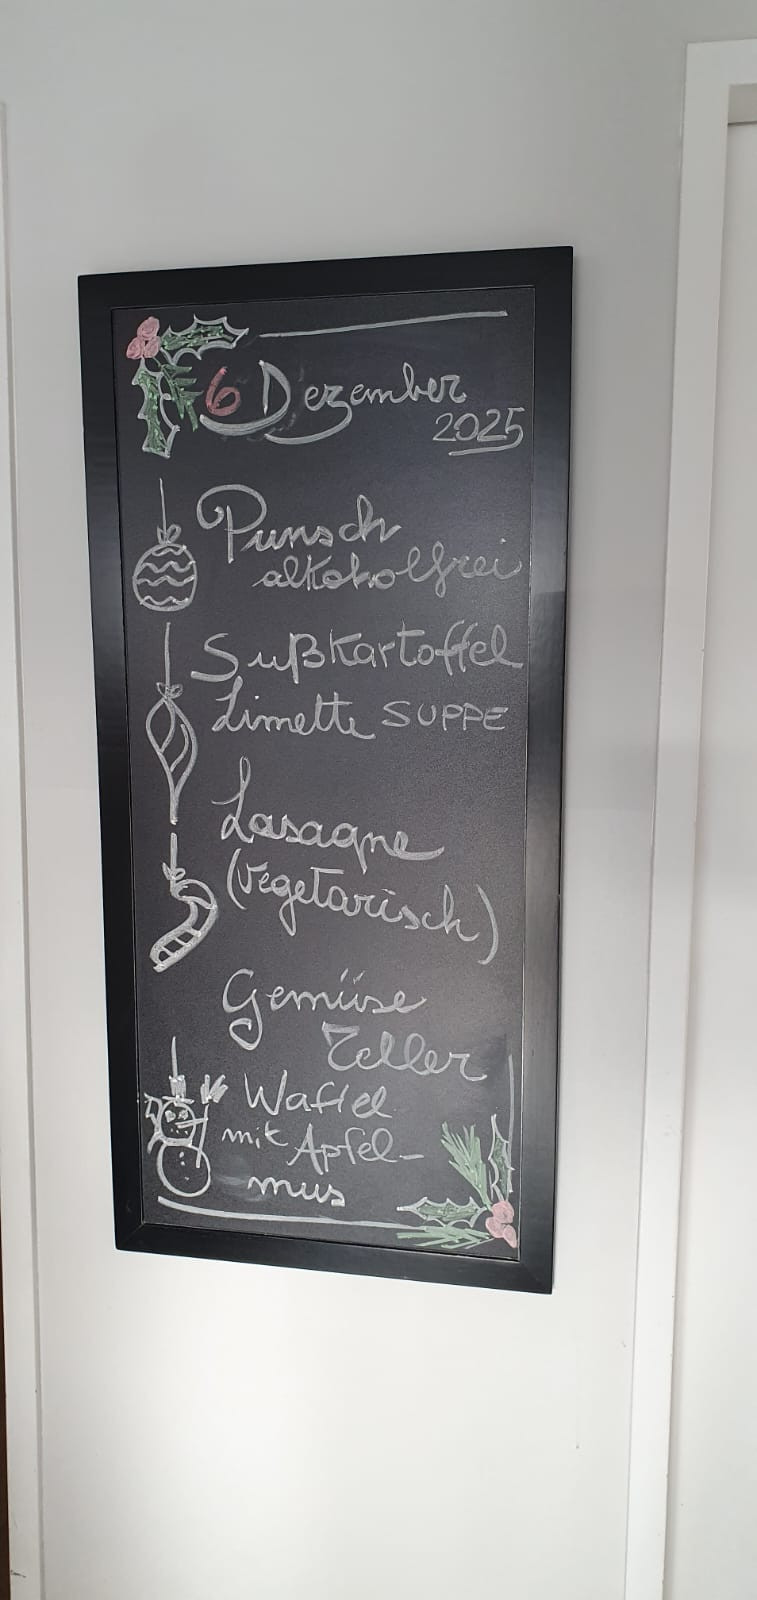 6 Dezember
2025
Punsch
alkoholfrei
Sußkartoffel
Limette SUPPE
Lasagne
(vegetarisch)
Gemüse
Teller
Waffel
mit Apfel-
mus